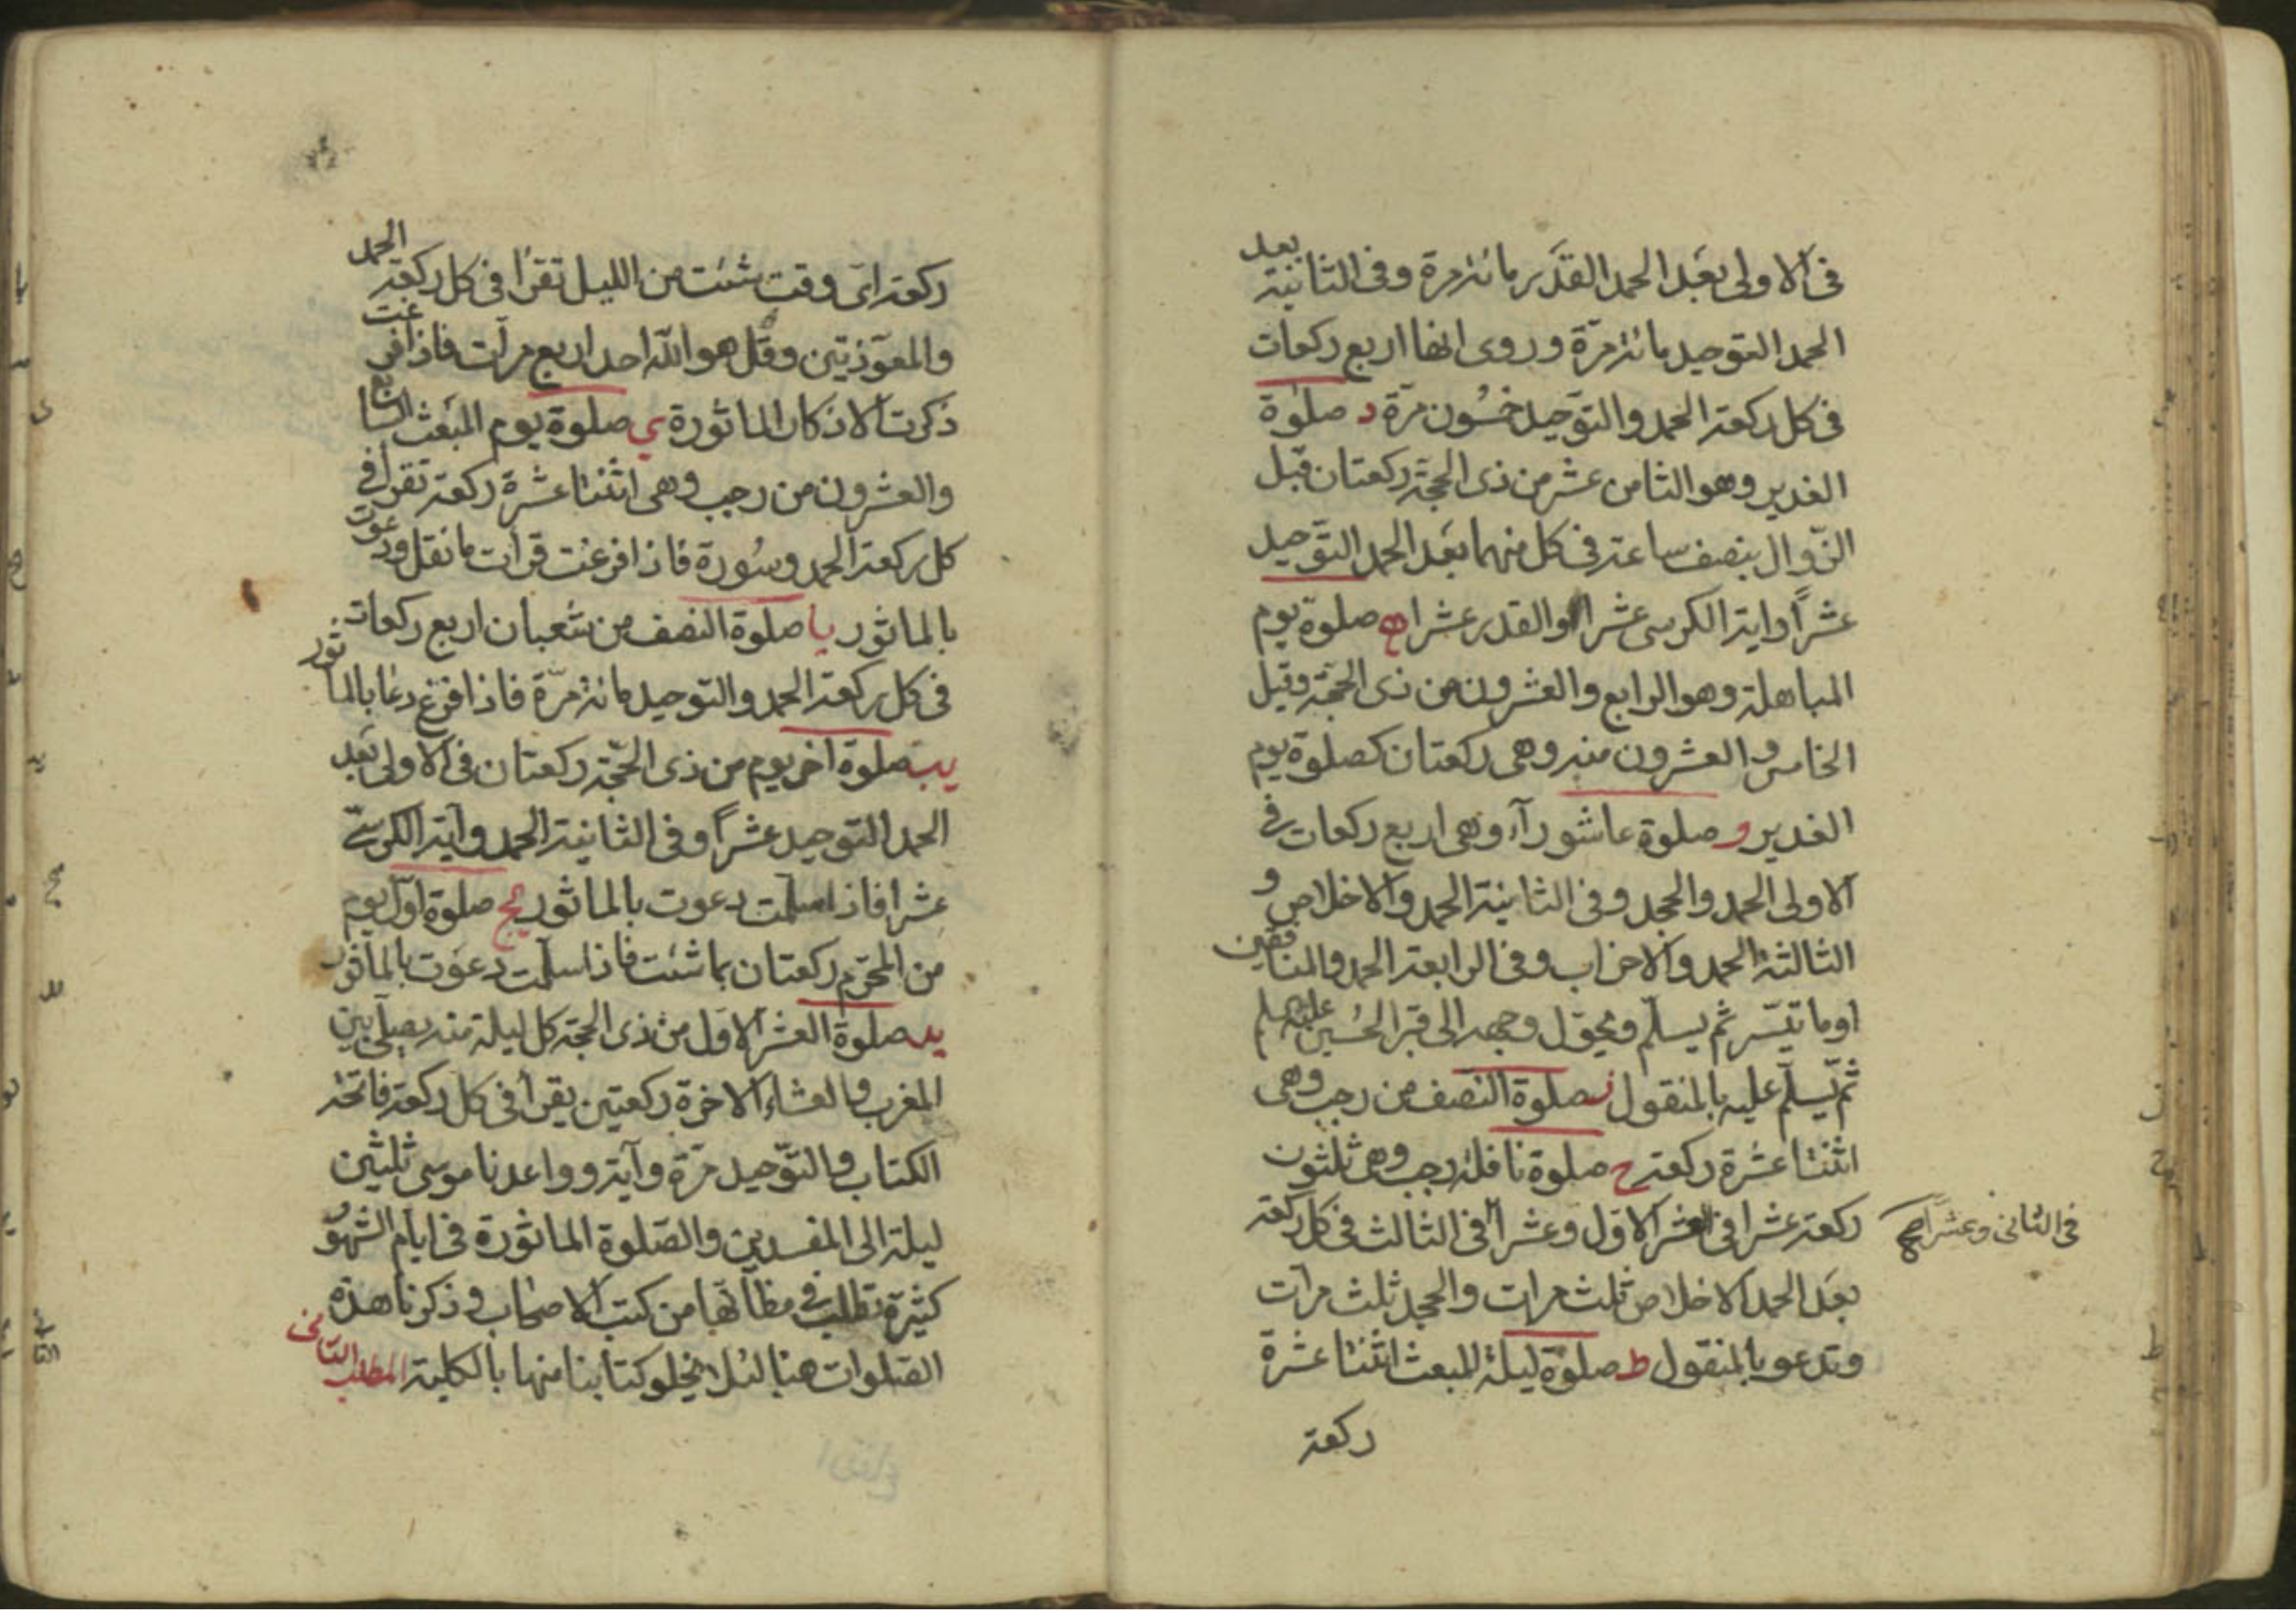 فى الاولى بعد الحمد القدر مائة مرة وفى الثانية بعد
الحمد التوحيد مائة مرّة وروى انها اربع ركعات
فى كل ركعة الحمد والتوحيد خمسُون مرّة د صلوة
الغدير وهو الثامن عشر من ذى الحجة ركعتان قبل
الزّوال بنصف ساعة فى كل منهما بعد الحمد التوّحيد
عشراً واية الكرسى عشرا والقدر عشرا ه صلوة يوم
المباهلة وهو الرابع والعشرون من ذى الحجّة وقيل
الخامس والعشرون منه وهى ركعتان كصلوة يوم
الغدير و صلوة عاشورآء وهى اربع ركعات فى
الاولى الحمد والجحد وفى الثانية الحمد والاخلاص و
الثالثة الحمد والاحزاب وفى الرابعة الحمد والمنافقين
او ما تيسّر ثم يسلّم ويحوّل وجهه الى قبر الحُسين عليه سلم
ثمّ يسلّم عليه بالمنقول ز صلوة النّصف من رجب وهى
اثنتا عشرة ركعة ح صلوة نافلة رجب وهى ثلثون
ركعة عشرا فى العشر الاوّل وعشرا فى الثالث فى كل ركعة
فى الثانى وعشراً صح
بعد الحمد الاخلاص ثلث مرات والجحد ثلث مرآت
وتدعو بالمنقول ط صلوة ليلة المبعث اثنتا عشرة
ركعة
ركعة اىّ وقت شئت من الليل تقرأ فى كل ركعة الحمد
والمعوّذتين وقل هو اللّه احد اربع مرآت فاذا فرغت
ذكرت الاذكار الماثورة ي صلوة يوم المبعث السابع
والعشرون من رجب وهى اثنتا عشرة ركعة تقرأ فى
كل ركعة الحمد وسُورة فاذا فرغت قرات ما نقل ودعوت
بالماثور يا صلوة النصف من شعبان اربع ركعات
فى كل ركعة الحمد والتوحيد مائة مرّة فاذا فرغ دعا بالماثور
يب صلوة اخر يوم من ذى الحّجة ركعتان فى الاولى بعد
الحمد التوحيد عشراً وفى الثانية الحمد وآية الكرسىّ
عشرا فاذا سلّمت دعوت بالماثور يج صلوة اوّل يوم
من المحّرم ركعتان بما شئت فاذا سلّمت دعوت بالماثور
يد صلوة العشر الاوّل من ذى الحجة كل ليلة منه يصلّى بين
المغرب والعشاء الاخرة ركعتين يقرأ فى كل ركعة فاتحة
الكتاب والتوّحيد مرّة وآية وواعدنا موسى ثلثين
ليلة الى المفسدين والصّلوة الماثورة فى ايام الشهور
كثيرة تطلب فى مظانّها من كتب الاصحاب وذكرنا هذه
الصّلوات هنا لئلا يخلو كتابنا منها بالكلية المطلب الثانى